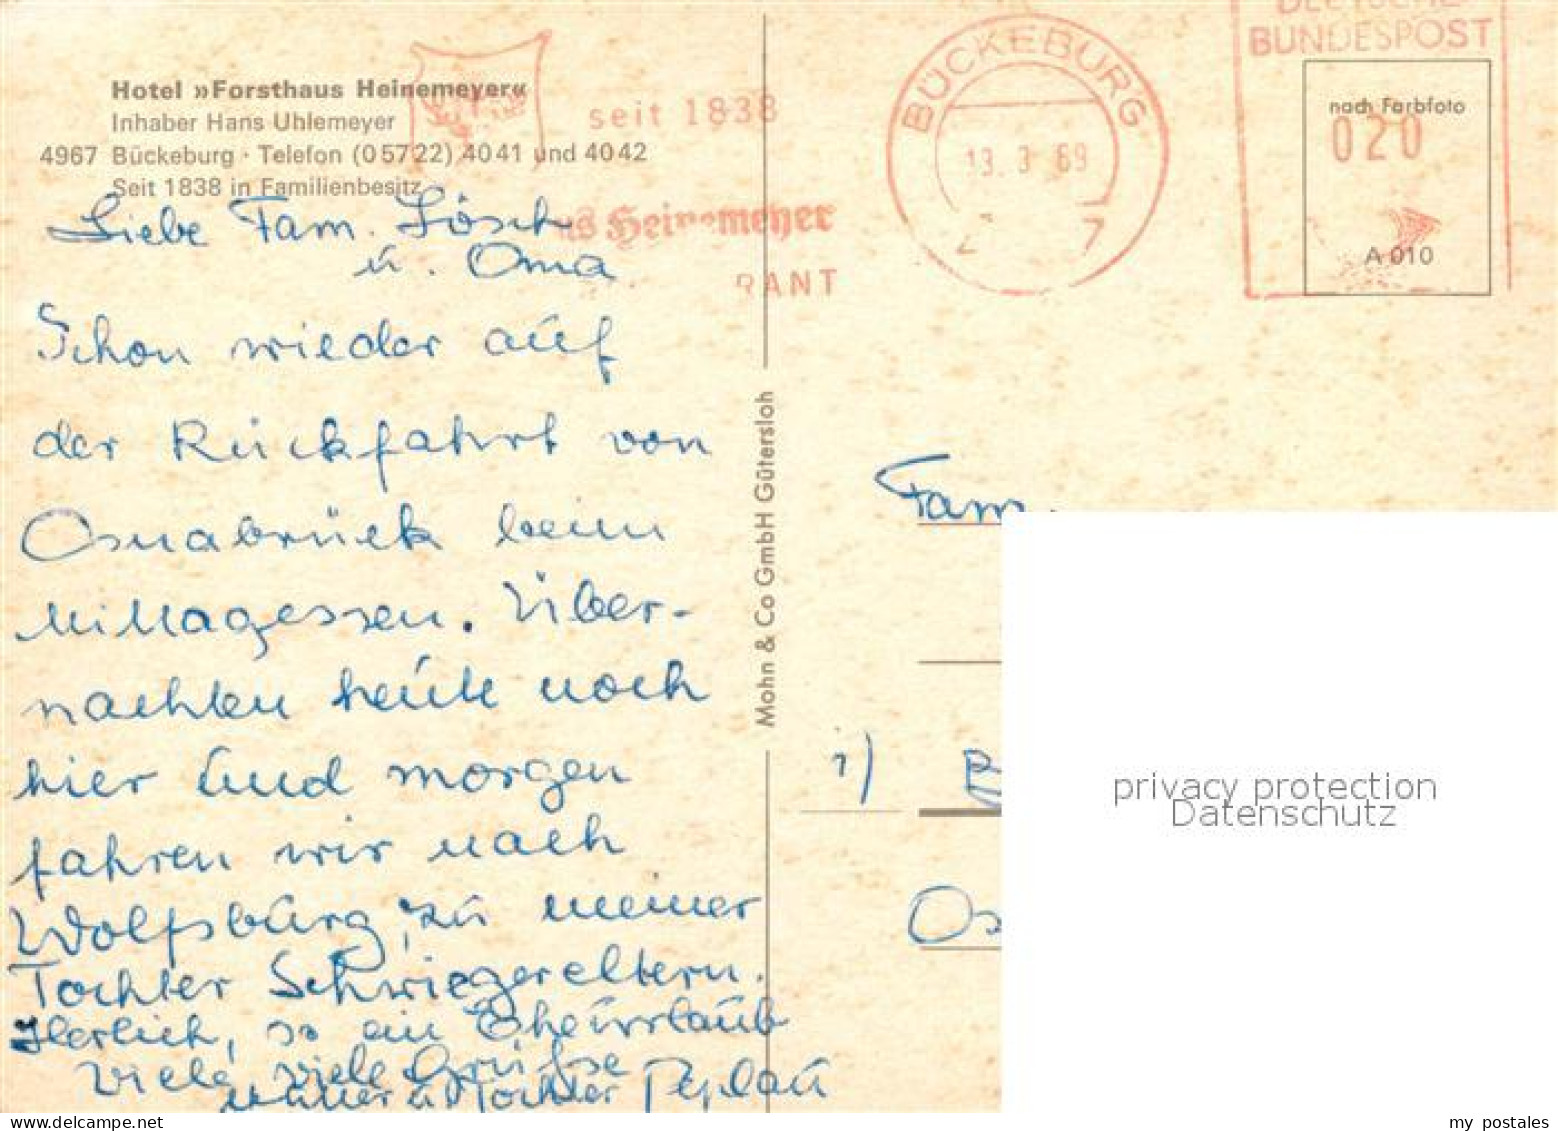 Hotel »Forsthaus Heinemeyer«
Inhaber Hans Uhlemeyer
4967 Bückeburg · Telefon (05722) 4041 und 4042
Seit 1838 in Familienbesitz
seit 1838
us Heinemeyer
RANT
BÜCKEBURG
13. 3 69
DEUTSCHE
BUNDESPOST
nach Farbfoto
020
A 010
Liebe Fam. Lösch
u. Oma
Schon wieder auf
der Rückfahrt von
Osnabrück beim
Mittagessen. Über-
nachten heute noch
hier und morgen
fahren wir nach
Wolfsburg, zu meiner
Tochter Schwiegereltern.
Herlich, so ein Eheurlaub
Viele, viele Grüße
Mutter u. Tochter Peplau
Mohn & Co GmbH Gütersloh
Fam.
B
Os
privacy protection
Datenschutz
my postales